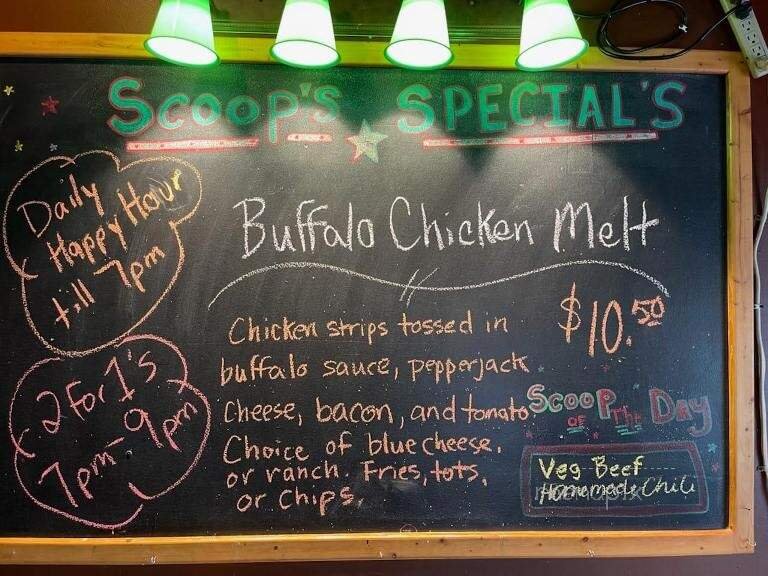 Scoop's SPECIAL'S
Daily
Happy Hour
till 7pm
2 For 1's
7pm-9pm
Buffalo Chicken Melt
$10.50
Chicken strips tossed in
buffalo sauce, pepperjack
cheese, bacon, and tomato
Choice of blue cheese,
or ranch. Fries, tots,
or chips.
Scoop OF The Day
Veg Beef
Homemade Chili